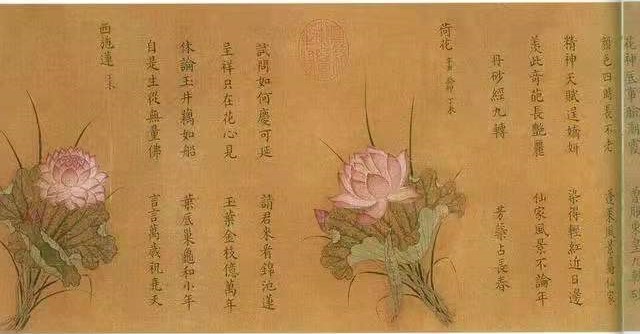 花神底事臉潮霞
顏色四時長不老 蓬萊風景屬仙家
精神天賦逞嬌妍 染得輕紅近日邊
羨此奇葩長艷麗 仙家風景不論年
丹砂經九轉 芳蘂占長春
荷花
試問如何慶可延 請君來看錦池蓮
呈祥只在花心見 玉葉金枝億萬年
休論玉井藕如船 葉底巢龜和小年
自是生從無量佛 言言萬歲祝堯天
西池蓮